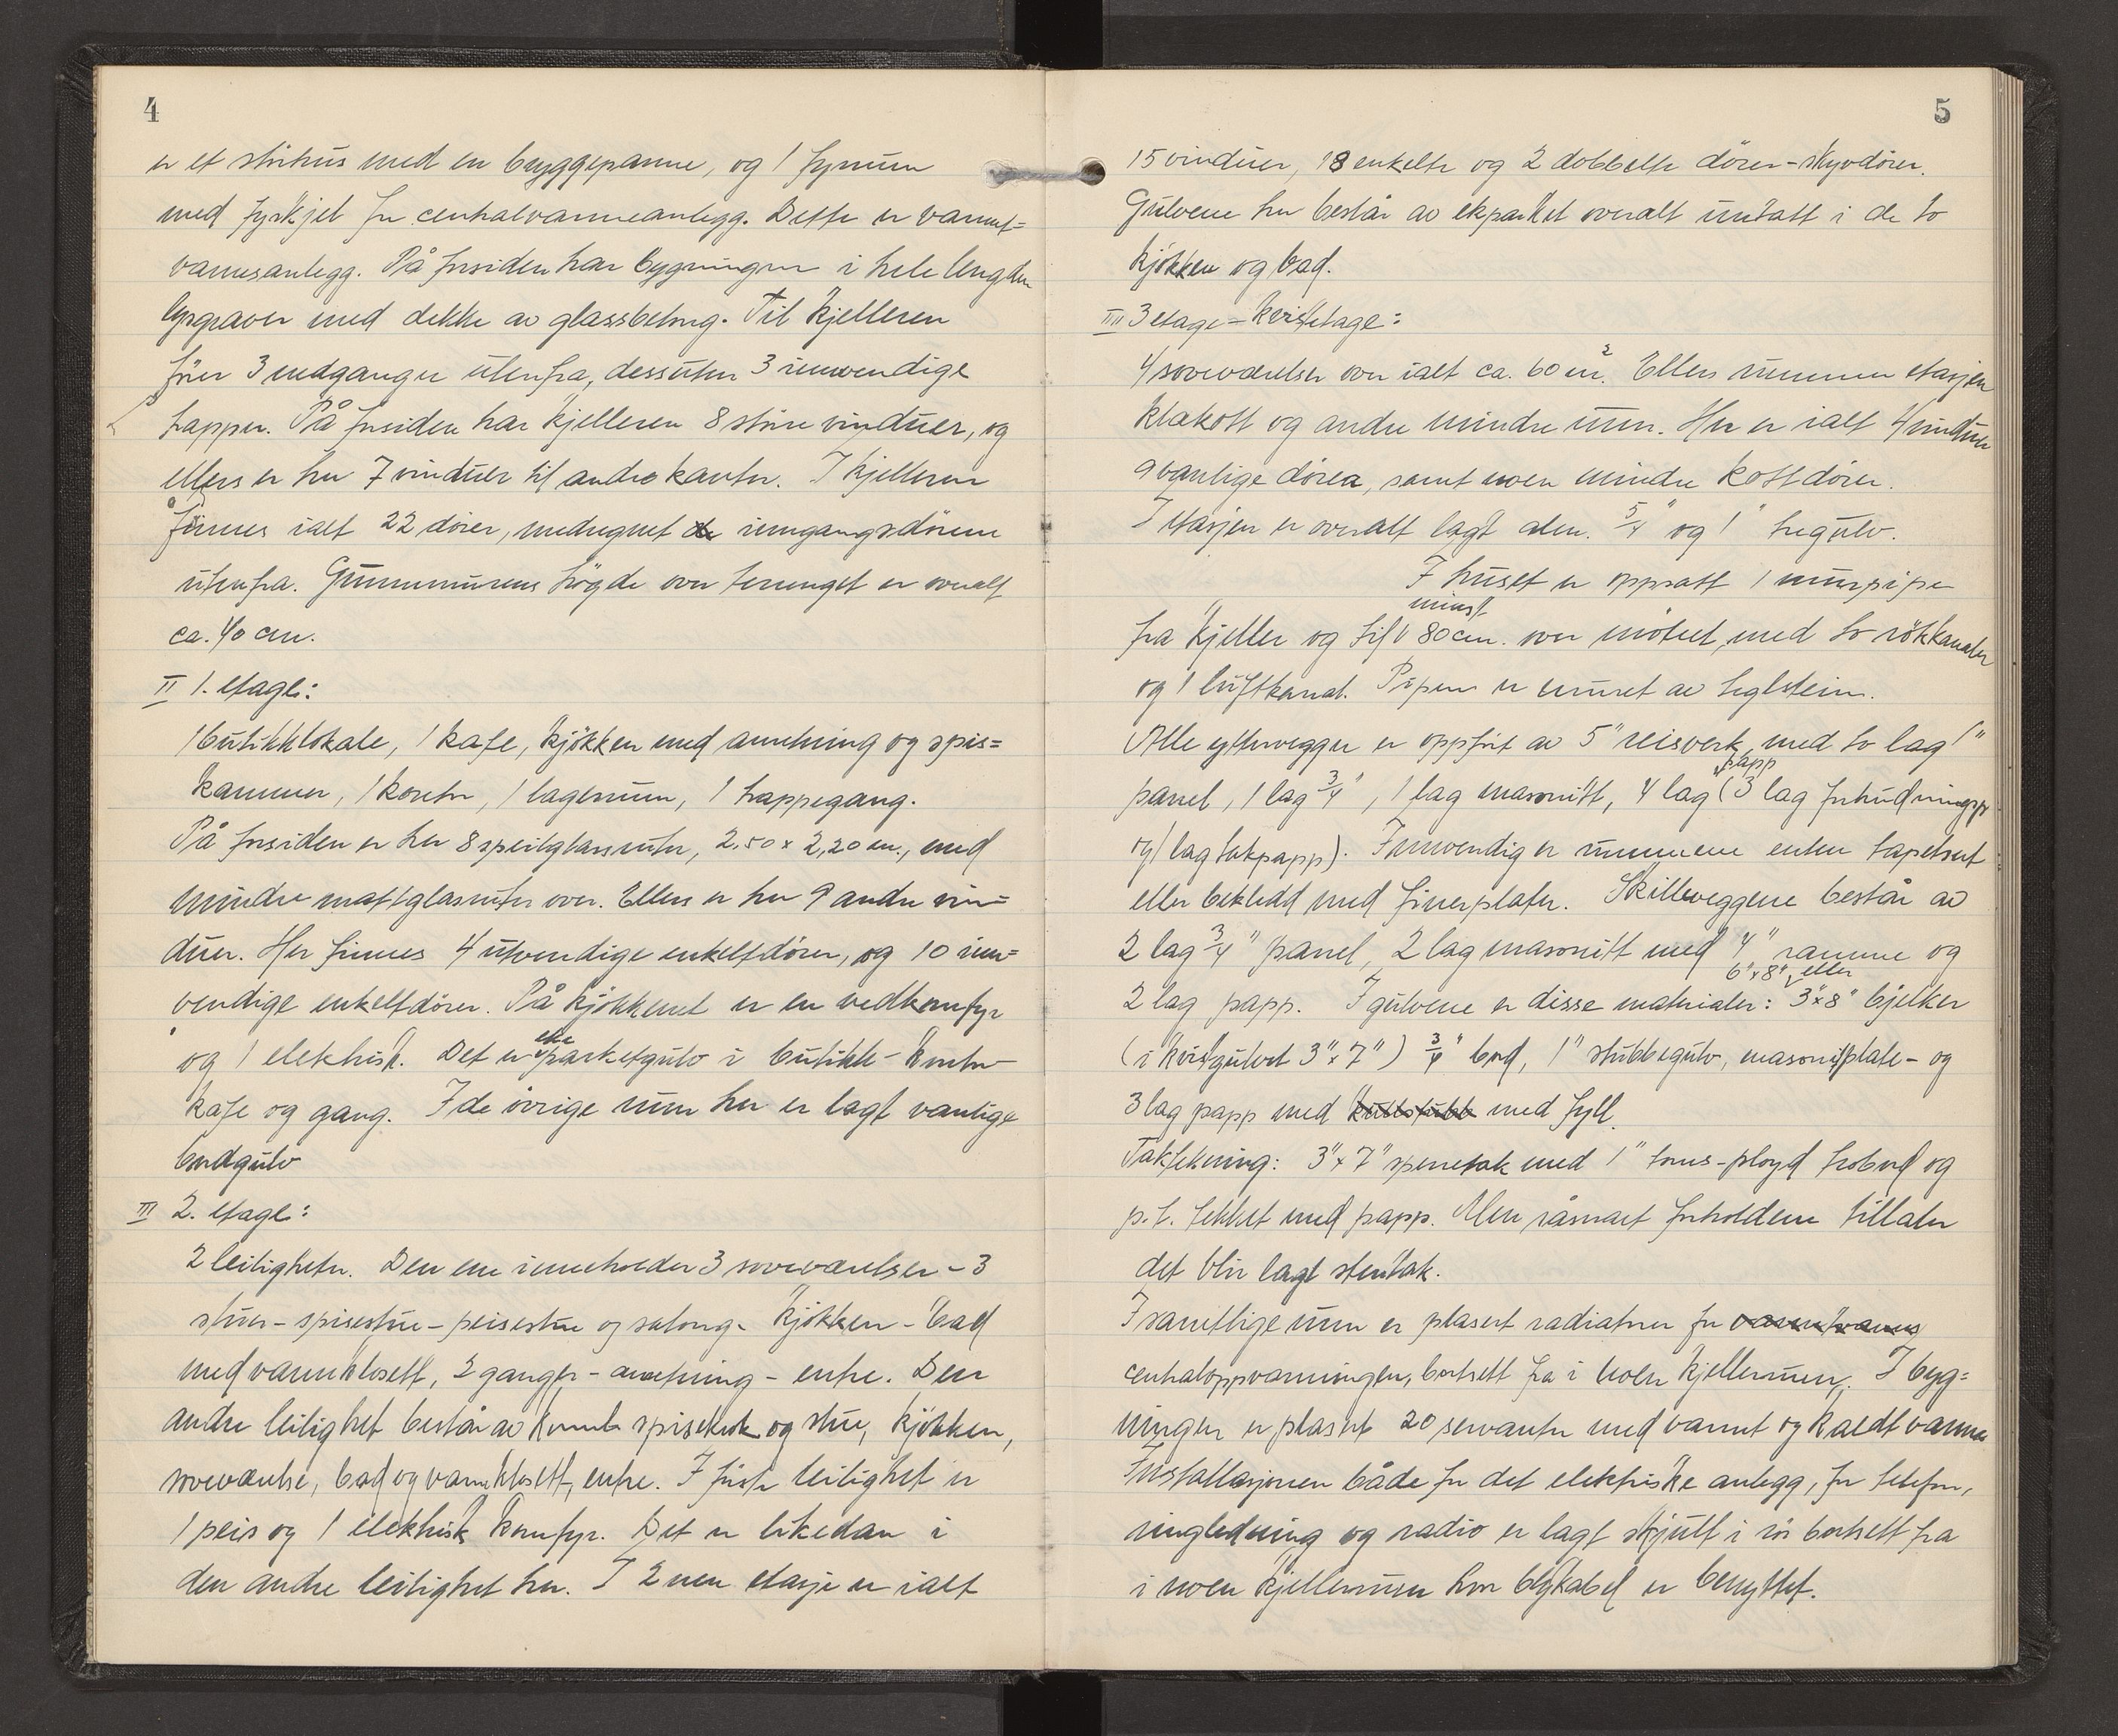 4
er et strihus med en bryggepanne, og 1 fyrrum
med fyrkjel for centralvarmeanlegg. Dette er varmt=
vannsanlegg. På forsiden har bygningen i hele lengden
lysgraver med dekke av glassbetong. Til kjelleren
fører 3 nedganger utenfra, dessuten 3 innvendige
trapper. På forsiden har kjelleren 8 større vinduer, og
ellers er her 7 vinduer til andre kanter. I kjelleren
finnes ialt 22 dører, medregnet de inngangsdørene
utenfra. Grunnmurens høgde over terrenget er overalt
ca. 40 cm.
II 1. etage:
1 butikklokale, 1 kafe, kjøkken med anretning og spis=
kammer, 1 kontor, 1 lagerrum, 1 trappegang.
På forsiden er her 8 speilglassruter, 2,50 x 2,20 m., med
mindre mattglassruter over. Ellers er her 9 andre vin=
duer. Her finnes 4 utvendige enkeltdører, og 10 inn=
vendige enkeltdører. På kjøkkenet er en vedkomfyr
og 1 elektrisk. Det er eke parketgulv i butikk - kontor
kafe og gang. I de øvrige rum her er lagt vanlige
bordgulv
III 2. etage:
2 leiligheter. Den ene inneholder 3 soveværelser - 3
stuer - spisestue - peisestue og salong - kjøkken - bad
med vannklosett, 2 ganger - anretning - entre. Den
andre leilighet består av komb. spisekrok og stue, kjøkken,
soveværelse, bad og vannklosett, entre. I første leilighet er
1 peis og 1 elektrisk komfyr. Det er likedan i
den andre leilighet her. I 2nen etasje er ialt
5
15 vinduer, 18 enkelte og 2 dobbelte dører - skyvdører.
Gulvene her består av ekparket overalt untatt i de to
kjøkken og bad.
III 3 etage - kvistetage:
4 soveværelser over ialt ca. 60 m². Ellers rummer etasjen
klækott og andre mindre rum. Her er ialt 4 vinduer
9 vanlige dører, samt noen mindre kottdører.
I etasjen er overalt lagt alm. 5/4" og 1" tregulv.
I huset er oppsatt 1 murpipe
fra kjeller og til minst 80 cm. over mønet, med to røkkanaler
og 1 luftkanal. Pipen er muret av teglstein.
Alle yttervegger er oppført av 5" reisverk, med to lag 1"
panel, 1 lag 3/4", 1 lag masonitt, 4 lag papp (3 lag forhudningsp.
og 1 lag takpapp). Innvendig er rummene enten tapetsert
eller bekledd med finerplater. Skilleveggene består av
2 lag 3/4" panel, 2 lag masonitt med 4" ramme og
2 lag papp. I gulvene er disse materialer: 6"x8", eller 3"x8" bjelker
(i kvistgulvet 3"x7") 3/4" bord, 1" stubbegulv, masonitplate - og
3 lag papp med med fyll.
Taktekning: 3"x7" sperretak med 1" toms - pløyd trobord og
p.t. tekket med papp. Men såsnart forholdene tillater
det blir lagt stentak.
I samtlige rum er plasert radiatorer for
centraloppvarmingen, bortsett fra i noen kjellerrum. I byg=
ningen er plasert 20 servanter med varmt og kaldt vann.
Installasjonen både for det elektriske anlegg, for telefon,
ringledning og radio er lagt skjult i rør bortsett fra
i noen kjellerrum hvor blykabel er benyttet.